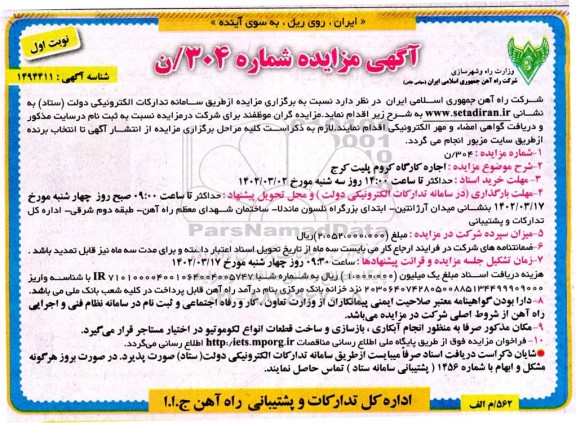 « ایران ، روی ریل ، به سوی آینده »
نوبت اول
آگهی مزایده شماره ۳۰۴/ن
شناسه آگهی : ۱۴۹۴۴۱۱
وزارت راه وشهرسازی
شرکت راه آهن جمهوری اسلامی ایران (سهامی خاص)
شرکت راه آهن جمهوری اسلامی ایران در نظر دارد نسبت به برگزاری مزایده ازطریق سامانه تدارکات الکترونیکی دولت (ستاد) به
نشانی www.setadiran.ir به شرح زیر اقدام نماید.مزایده گران موظفند برای شرکت درمزایده نسبت به ثبت نام درسایت مذکور
و دریافت گواهی امضاء و مهر الکترونیکی اقدام نمایند.لازم به ذکراست کلیه مراحل برگزاری مزایده از انتشار آگهی تا انتخاب برنده
ازطریق سایت مزبور انجام می گردد.
۱-شماره مزایده : ۳۰۴/ن
۲-شرح موضوع مزایده : اجاره کارگاه کروم پلیت کرج
۳- مهلت خرید اسناد : حداکثر تا ساعت ۱۴:۰۰ روز سه شنبه مورخ ۱۴۰۲/۰۳/۰۲
۴-مهلت بارگذاری (در سامانه تدارکات الکترونیکی دولت ) و محل تحویل پیشنهاد : حداکثر تا ساعت ۰۹:۰۰ صبح روز چهار شنبه مورخ
۱۴۰۲/۰۳/۱۷ بنشانی میدان آرژانتین- ابتدای بزرگراه نلسون ماندلا- ساختمان شهدای معظم راه آهن- طبقه دوم شرقی- اداره کل
تدارکات و پشتیبانی
۵-میزان سپرده شرکت در مزایده : مبلغ (۲،۰۵۲،۰۰۰،۰۰۰)ریال
۶-ضمانتنامه های شرکت در فرایند ارجاع کار می بایست سه ماه از تاریخ تحویل اسناد اعتبار داشته و برای مدت سه ماه نیز قابل تمدید باشد .
۷-زمان تشکیل جلسه مزایده و قرائت پیشنهادها : ساعت ۰۹:۳۰ روز چهار شنبه مورخ ۱۴۰۲/۰۳/۱۷
هزینه دریافت اسناد مبلغ یک میلیون (۱،۰۰۰،۰۰۰) ریال به شماره شبا IR ۷۱۰۱۰۰۰۰۴۰۰۱۰۶۴۰۰۴۰۰۵۷۴۷ با شناسه واریز
۲۰۳۰۶۴۰۷۴۲۸۰۵۰۰۸۸۵۱۳۴۴۹۹۹۰۹۰۰۰ نزد خزانه بانک مرکزی بنام درآمد راه آهن قابل پرداخت در کلیه شعب بانک ملی می باشد.
۸-دارا بودن گواهینامه معتبر صلاحیت ایمنی پیمانکاران از وزارت تعاون ، کار و رفاه اجتماعی و ثبت نام در سامانه نظام فنی و اجرایی
راه آهن از شروط اصلی شرکت در مزایده می‌باشد.
۹-مکان مذکور صرفا به منظور انجام آبکاری ، بازسازی و ساخت قطعات انواع لکوموتیو در اختیار مستاجر قرار می‌گیرد.
۱۰- فراخوان مزایده فوق از طریق پایگاه ملی اطلاع رسانی مناقصات http:/iets.mporg.ir اطلاع رسانی می‌گردد.
●شایان ذکراست دریافت اسناد صرفاً میبایست ازطریق سامانه تدارکات الکترونیکی دولت(ستاد) صورت پذیرد. در صورت بروز هرگونه
مشکل و ابهام با شماره ۱۴۵۶ ( پشتیبانی سامانه ستاد ) تماس حاصل نمایند.
اداره کل تدارکات و پشتیبانی راه آهن ج.ا.ا
۵۶۲/م الف